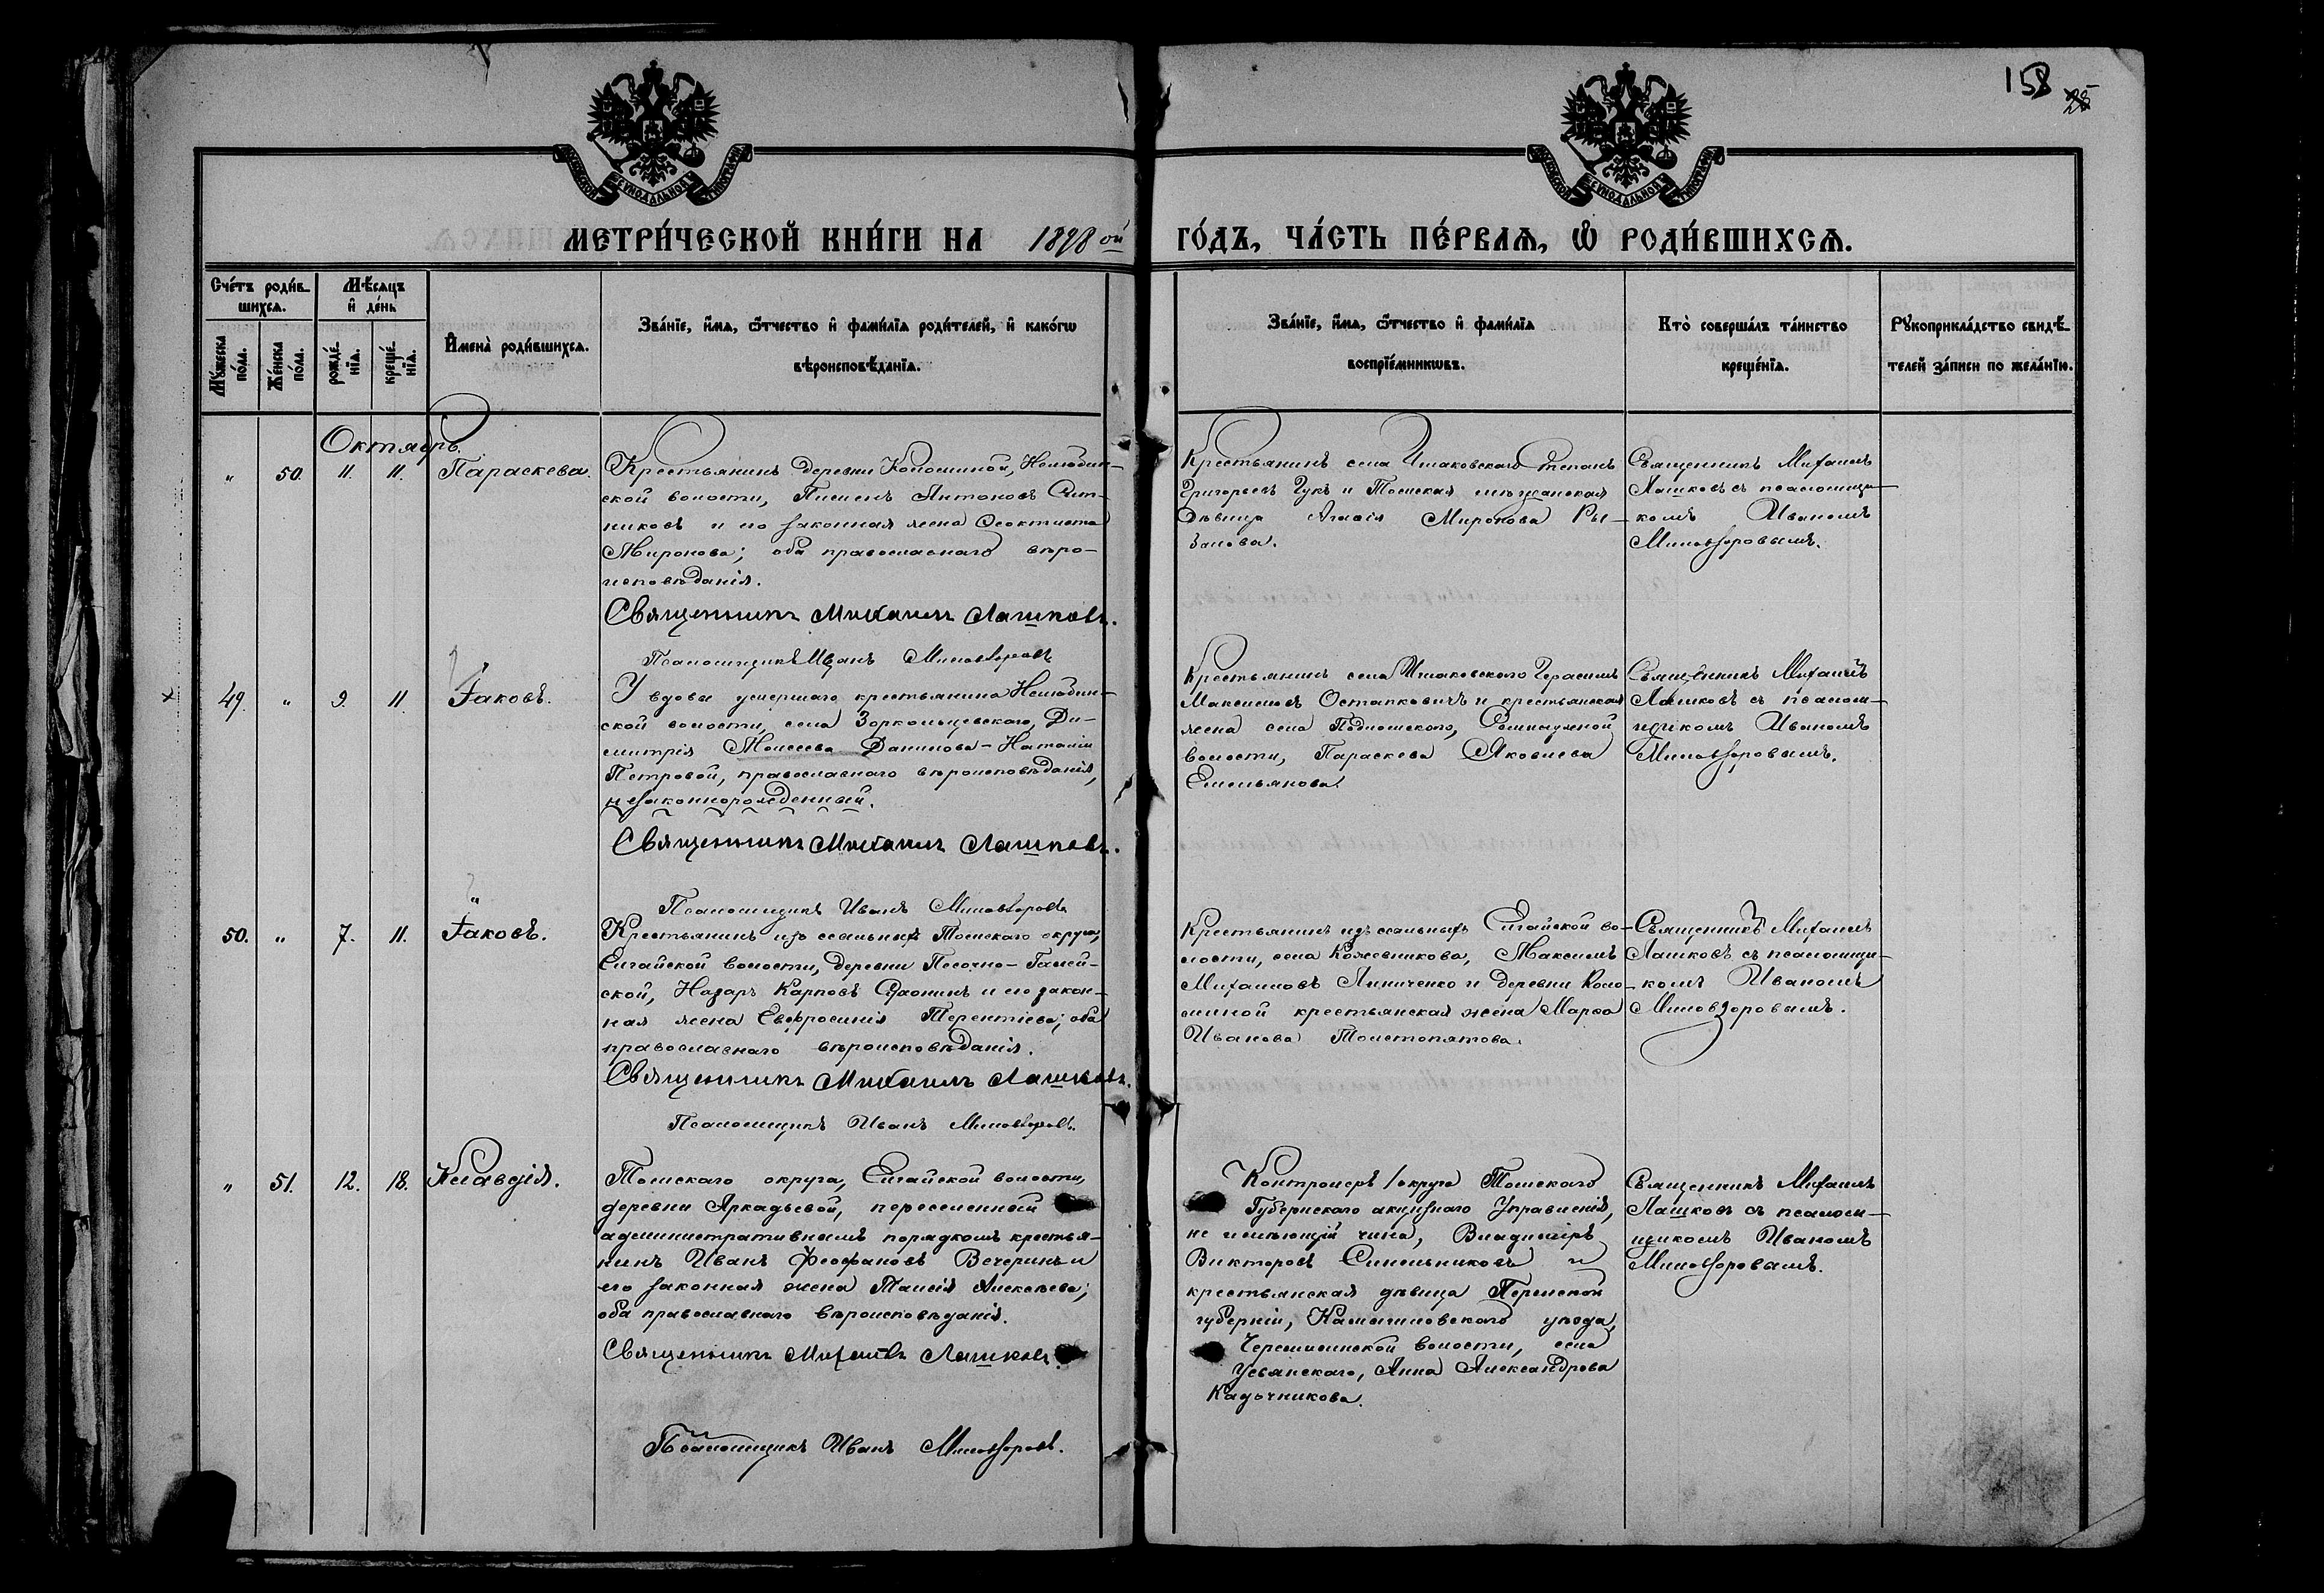 158
25
МОСКОВСКОЙ СѴНОДАЛЬНОЙ ТИПОГРАФІИ
МОСКОВСКОЙ СѴНОДАЛЬНОЙ ТИПОГРАФІИ
МЕТРИ́ЧЕСКОЙ КНИ́ГИ НА 1898 ой
ГО́ДЪ, ЧА́СТЬ ПЕ́РВАѦ, Ѡ҆ РОДИ́ВШИХСѦ.
Сче́тъ роди́в-
шихсѧ.
Мѣ́сѧцъ
и҆ де́нь
Мꙋ́жеска
по́ла.
Же́нска
по́ла.
рожде́-
нїѧ.
креще́-
нїѧ.
И҆мена̀ роди́вшихсѧ.
Зва́нїе, и҆́мѧ, ѻ҆́тчество и҆ фами́лїѧ роди́телей, и҆ како́гѡ
вѣроисповѣ́данїѧ.
Зва́нїе, и҆́мѧ, ѻ҆́тчество и҆ фами́лїѧ
воспрїе́мникѡвъ.
Кто̀ соверша́лъ та́инство
креще́нїѧ.
Рꙋкоприкла́дство свидѣ́-
телей за́писи по жела́нїю.
Октябрь.
„ 50. 11. 11. Параскева.
Крестьянинъ деревни Коломиной, Нелюбин-
ской волости, Пименъ Антоновъ Сит-
никовъ и его законная жена Феоктиста
Миронова; оба православнаго вѣро-
исповѣданія.
Священникъ Михаилъ Лашковъ.
Псаломщикъ Иванъ Миловзоровъ
Крестьянинъ села Иглаковскаго Степанъ
Григорьевъ Гукъ и Томская мѣщанская
дѣвица Агафія Миронова Ры-
Священникъ Михаилъ
Лашковъ съ псаломщи-
комъ Иваномъ
Миловзоровымъ.
49. „ 9. 11. Іаковъ.
У вдовы умершаго крестьянина Нелюбин-
ской волости, села Зоркольцевскаго, Ди-
митрія Моисеева Данилова - Наталіи
Петровой, православнаго вѣроисповѣданія,
незаконнорожденный.
Священникъ Михаилъ Лашковъ.
Псаломщикъ Иванъ Миловзоровъ
Крестьянинъ села Иглаковскаго Герасимъ
Максимовъ Остапковичъ и крестьянская
жена села
волости, Параскева Яковлева
Емельянова.
Священникъ Михаилъ
Лашковъ съ псалом-
щикомъ Иваномъ
Миловзоровымъ.
50. „ 7. 11. Іаковъ.
Крестьянинъ изъ ссыльныхъ Томскаго округа,
Елгайской волости, деревни Песочно-
ской, Назаръ Карповъ и его закон-
ная жена Евфросинія Терентіева; оба
православнаго вѣроисповѣданія.
Священникъ Михаилъ Лашковъ.
Псаломщикъ Иванъ Миловзоровъ.
Крестьянинъ изъ ссыльныхъ Елгайской во-
лости, села Кожевникова, Максимъ
Михаиловъ Линиченко и деревни Коло-
миной крестьянская жена Марфа
Иванова Толстопятова.
Священникъ Михаилъ
Лашковъ съ псаломщи-
комъ Иваномъ
Миловзоровымъ.
„ 51. 12. 18. Клавдія.
Томскаго округа, Елгайской волости,
деревни Аркадьевой, переселенный
административнымъ порядкомъ крестья-
нинъ Иванъ Феофановъ Вечеринъ и
его законная жена Таисія Алексѣева;
оба православнаго вѣроисповѣданія.
Священникъ Михаилъ Лашковъ.
Псаломщикъ Иванъ Миловзоровъ.
Контролеръ округа Томскаго
Губернскаго акцизнаго Управленія,
не имѣющій чина, Владиміръ
Викторовъ Синельниковъ и
крестьянская дѣвица Пермской
губерніи, Камышловскаго уѣзда,
волости, села
Усьянскаго, Анна Александрова
Кадочникова.
Священникъ Михаилъ
Лашковъ съ псалом-
щикомъ Иваномъ
Миловзоровымъ.